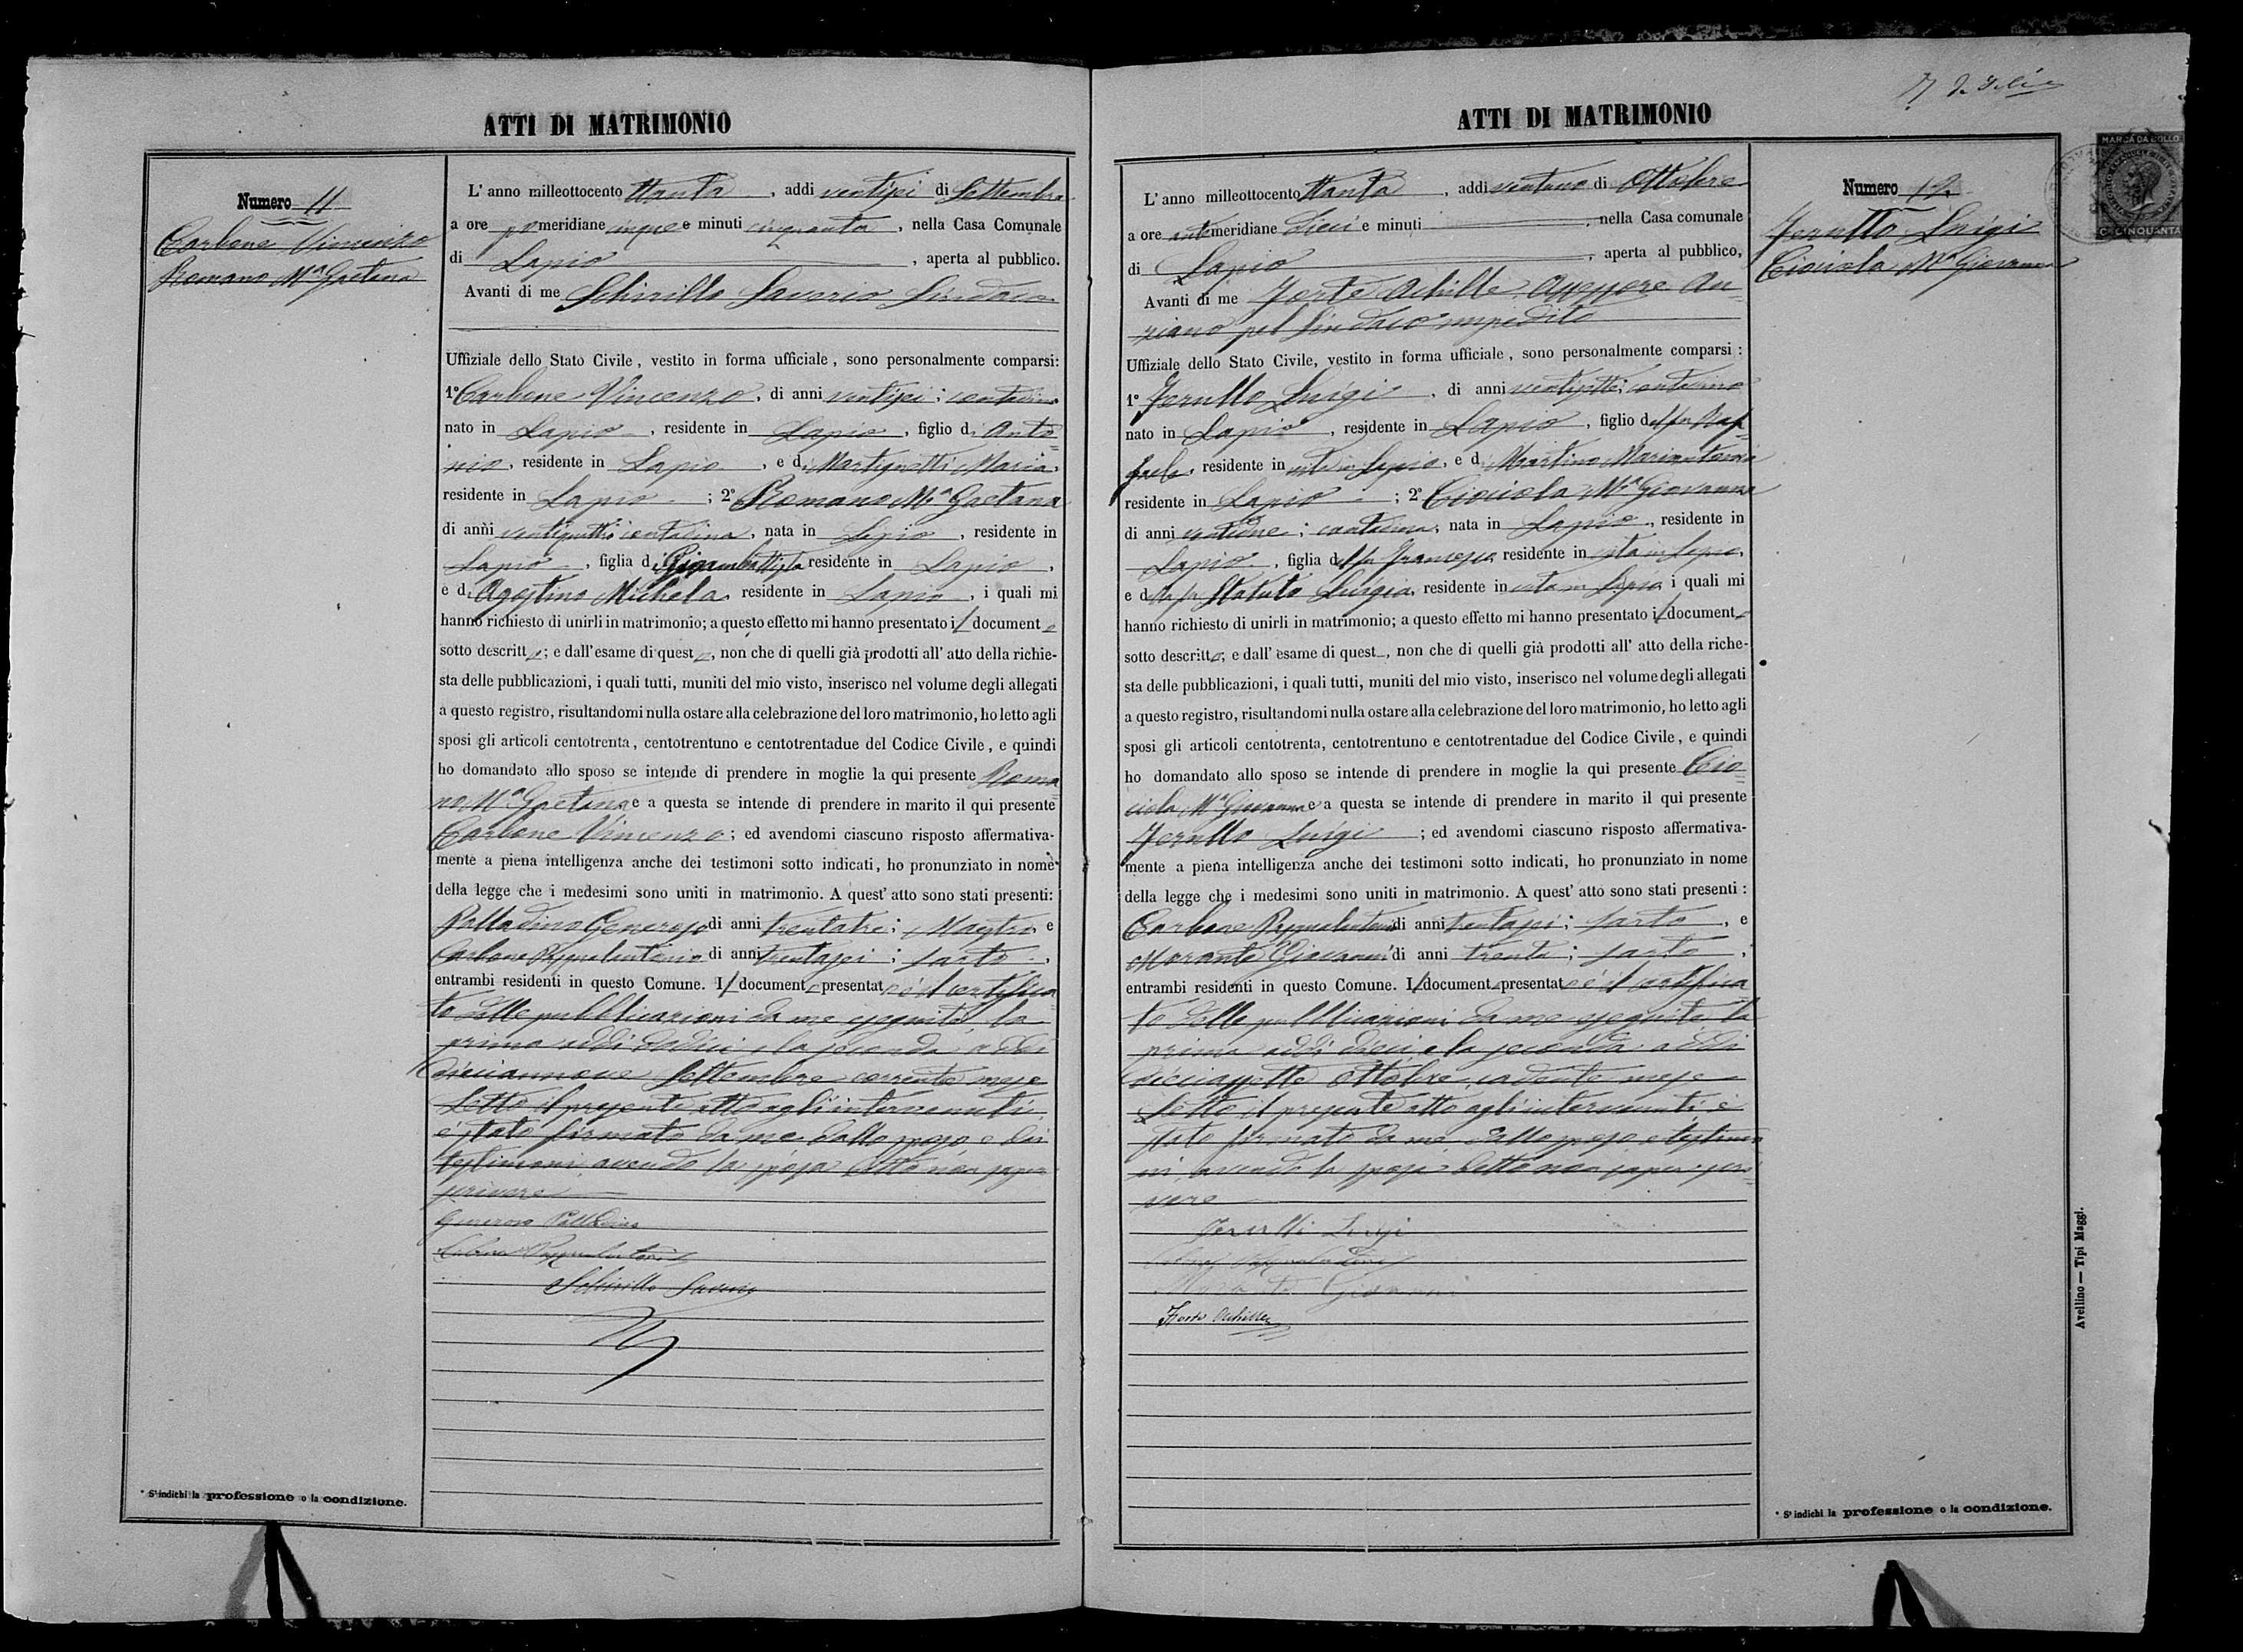 ATTI DI MATRIMONIO
Numero 11
Carbone Vincenzo
Romano Mª Gaetana
L' anno milleottocento ttanta, addi ventisei di Settembre
a ore pomeridiane cinque e minuti cinquanta, nella Casa Comunale
di Lapio, aperta al pubblico.
Avanti di me Schirillo Saverio Sindaco
Uffiziale dello Stato Civile, vestito in forma ufficiale, sono personalmente comparsi:
1º Carbone Vincenzo, di anni ventisei; contadino
nato in Lapio, residente in Lapio, figlio di Anto=
nio, residente in Lapio, e di Martignetti Maria,
residente in Lapio; 2º Romano Mª Gaetana
di anni ventiquattro contadina, nata in Lapio, residente in
Lapio, figlia di Giambattista residente in Lapio,
e di Agostino Michela, residente in Lapio, i quali mi
hanno richiesto di unirli in matrimonio; a questo effetto mi hanno presentato il document o
sotto descritt o; e dall' esame di quest o, non che di quelli già prodotti all' atto della richie-
sta delle pubblicazioni, i quali tutti, muniti del mio visto, inserisco nel volume degli allegati
a questo registro, risultandomi nulla ostare alla celebrazione del loro matrimonio, ho letto agli
sposi gli articoli centotrenta, centotrentuno e centotrentadue del Codice Civile, e quindi
ho domandato allo sposo se intende di prendere in moglie la qui presente Roma=
no Mª Gaetana e a questa se intende di prendere in marito il qui presente
Carbone Vincenzo; ed avendomi ciascuno risposto affermativa-
mente a piena intelligenza anche dei testimoni sotto indicati, ho pronunziato in nome
della legge che i medesimi sono uniti in matrimonio. A quest' atto sono stati presenti:
Palladino Generoso di anni trentatre; Maestro e
Carbone Pasqualantonio di anni trentasei; sarto,
entrambi residenti in questo Comune. Il document o presentat o è il certifica
to delle pubblicazioni da me eseguite la
prima addì dodici e la seconda addì
diciannove Settembre corrente mese
Letto il presente atto agli intervenuti
è stato firmato da me dallo sposo e dai
testimoni avendo la sposa detto non saper
scrivere
Generoso Palladino
Carbone Pasqualantonio
Schirillo Saverio
* S'indichi la professione o la condizione.
ATTI DI MATRIMONIO
MARCA DA BOLLO
C. CINQUANTA
Numero 12
Jerullo Luigi
Ciociola Mª Giovanna
L' anno milleottocento ttanta, addi ventuno di Ottobre
a ore antimeridiane dieci e minuti, nella Casa comunale
di Lapio, aperta al pubblico,
Avanti di me Forte Achille Assessore An=
ziano pel Sindaco impedito
Uffiziale dello Stato Civile, vestito in forma ufficiale, sono personalmente comparsi:
1º Jerullo Luigi, di anni ventisette; contadino
nato in Lapio, residente in Lapio, figlio del fu Raf=
faele, residente in vita in Lapio, e di Martino Mariantonia
residente in Lapio; 2º Ciociola Mª Giovanna
di anni; contadina, nata in Lapio, residente in
Lapio, figlia del fu Francesco residente in vita in Lapio,
e della fu Statuto Luigia, residente in vita in Lapio i quali mi
hanno richiesto di unirli in matrimonio; a questo effetto mi hanno presentato il document o
sotto descritt o; e dall' esame di quest, non che di quelli già prodotti all' atto della riche-
sta delle pubblicazioni, i quali tutti, muniti del mio visto, inserisco nel volume degli allegati
a questo registro, risultandomi nulla ostare alla celebrazione del loro matrimonio, ho letto agli
sposi gli articoli centotrenta, centotrentuno e centotrentadue del Codice Civile, e quindi
ho domandato allo sposo se intende di prendere in moglie la qui presente Cio=
ciola Mª Giovanna e a questa se intende di prendere in marito il qui presente
Jerullo Luigi; ed avendomi ciascuno risposto affermativa-
mente a piena intelligenza anche dei testimoni sotto indicati, ho pronunziato in nome
della legge che i medesimi sono uniti in matrimonio. A quest' atto sono stati presenti:
Carbone Pasqualantonio di anni trentasei; sarto, e
Morante Giovanni di anni trenta; sarto,
entrambi residenti in questo Comune. Il document o presentat o è il certifica=
to delle pubblicazioni da me eseguite la
prima addì dieci e la seconda addì
diciassette Ottobre cadente mese
Letto il presente atto agli intervenuti è
stato firmato da me dallo sposo e testimo
ni avendo la sposa detto non saper scri=
vere
Jerulli Luigi
Carbone Pasqualantonio
Morante Giovanni
Forte Achille
* S'indichi la professione o la condizione.
Avellino — Tipi Maggi.